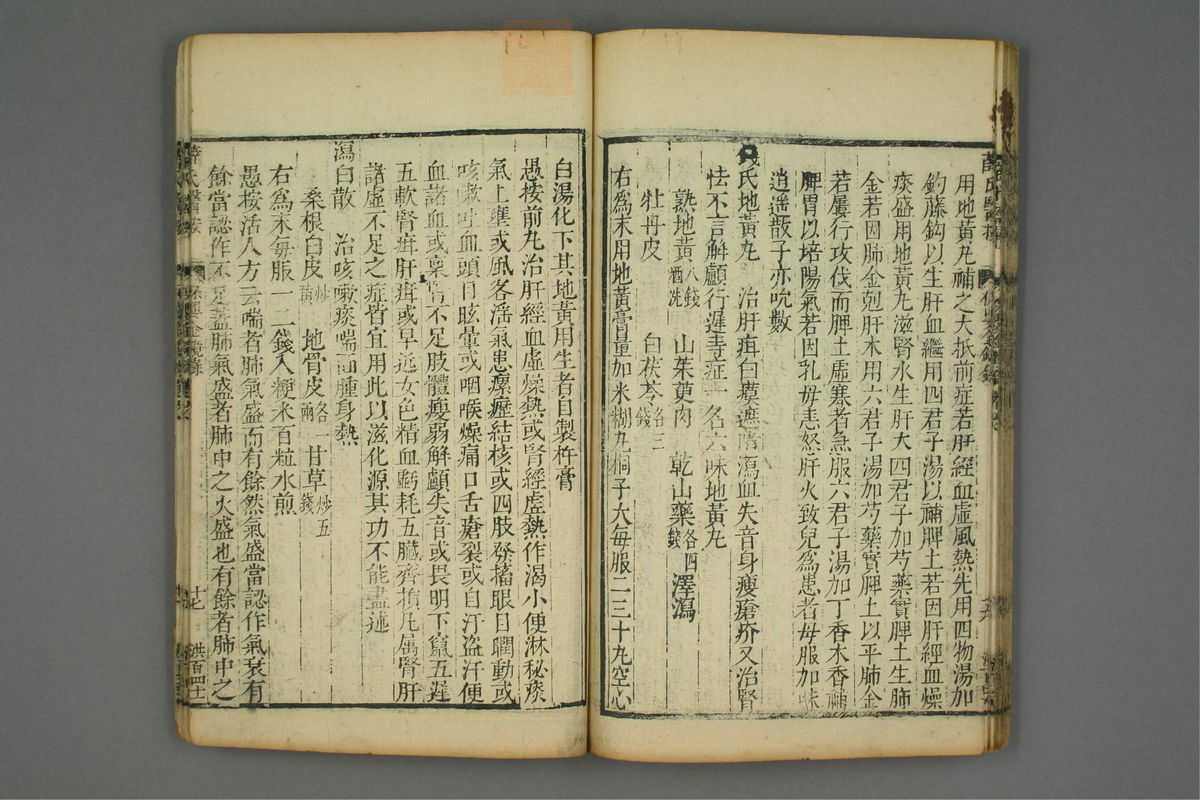 用地黃丸補之大抵前症若肝經血虛風熱先用四物湯加
鈎藤鈎以生肝血繼用四君子湯以補脾土若因肝經血燥
痰盛用地黃丸滋腎水生肝火四君子加芍藥實脾土生肺
金若因肺金剋肝木用六君子湯加芍藥實脾土以平肺金
若屢行攻伐而脾土虛寒者急服六君子湯加丁香木香補
脾胃以培陽氣若因乳母恚怒肝火致兒為患者母服加味
逍遙散子亦吮數
氏地黃丸 治肝疳白膜遮睛瀉血失音身瘦瘡疥又治腎
怯不言解顱行遲等症一名六味地黃丸
熟地黃八錢酒洗 山茱萸肉 乾山藥各四錢 澤瀉
牡丹皮 白茯苓各三錢
右為末用地黃膏量加米糊丸桐子大每服二三十丸空心
白湯化下其地黃用生者自製杵膏
愚按前丸治肝經血虛燥熱或腎經虛熱作渴小便淋秘痰
氣上壅或風客淫氣患瘰癧結核或四肢發搐眼目瞤動或
咳嗽吐血頭目眩暈或咽喉燥痛口舌瘡裂或自汗盜汗便
血諸血或稟 不足肢體瘦弱解顱失音或畏明下竄五遲
五軟腎疳肝疳或早近女色精血虧耗五臟齊損凡屬腎肝
諸虛不足之症皆宜用此以滋化源其功不能盡述
瀉白散 治咳嗽痰喘面腫身熱
桑根白皮炒黃 地骨皮各一兩 甘草炒五錢
右為末每服一二錢入粳米百粒水煎
愚按活人方云喘者肺氣盛而有餘然氣盛當認作氣衰有
餘當認作不足蓋肺氣盛者肺中之火盛也有餘者肺中之
薛氏醫按
十七
洪百四十